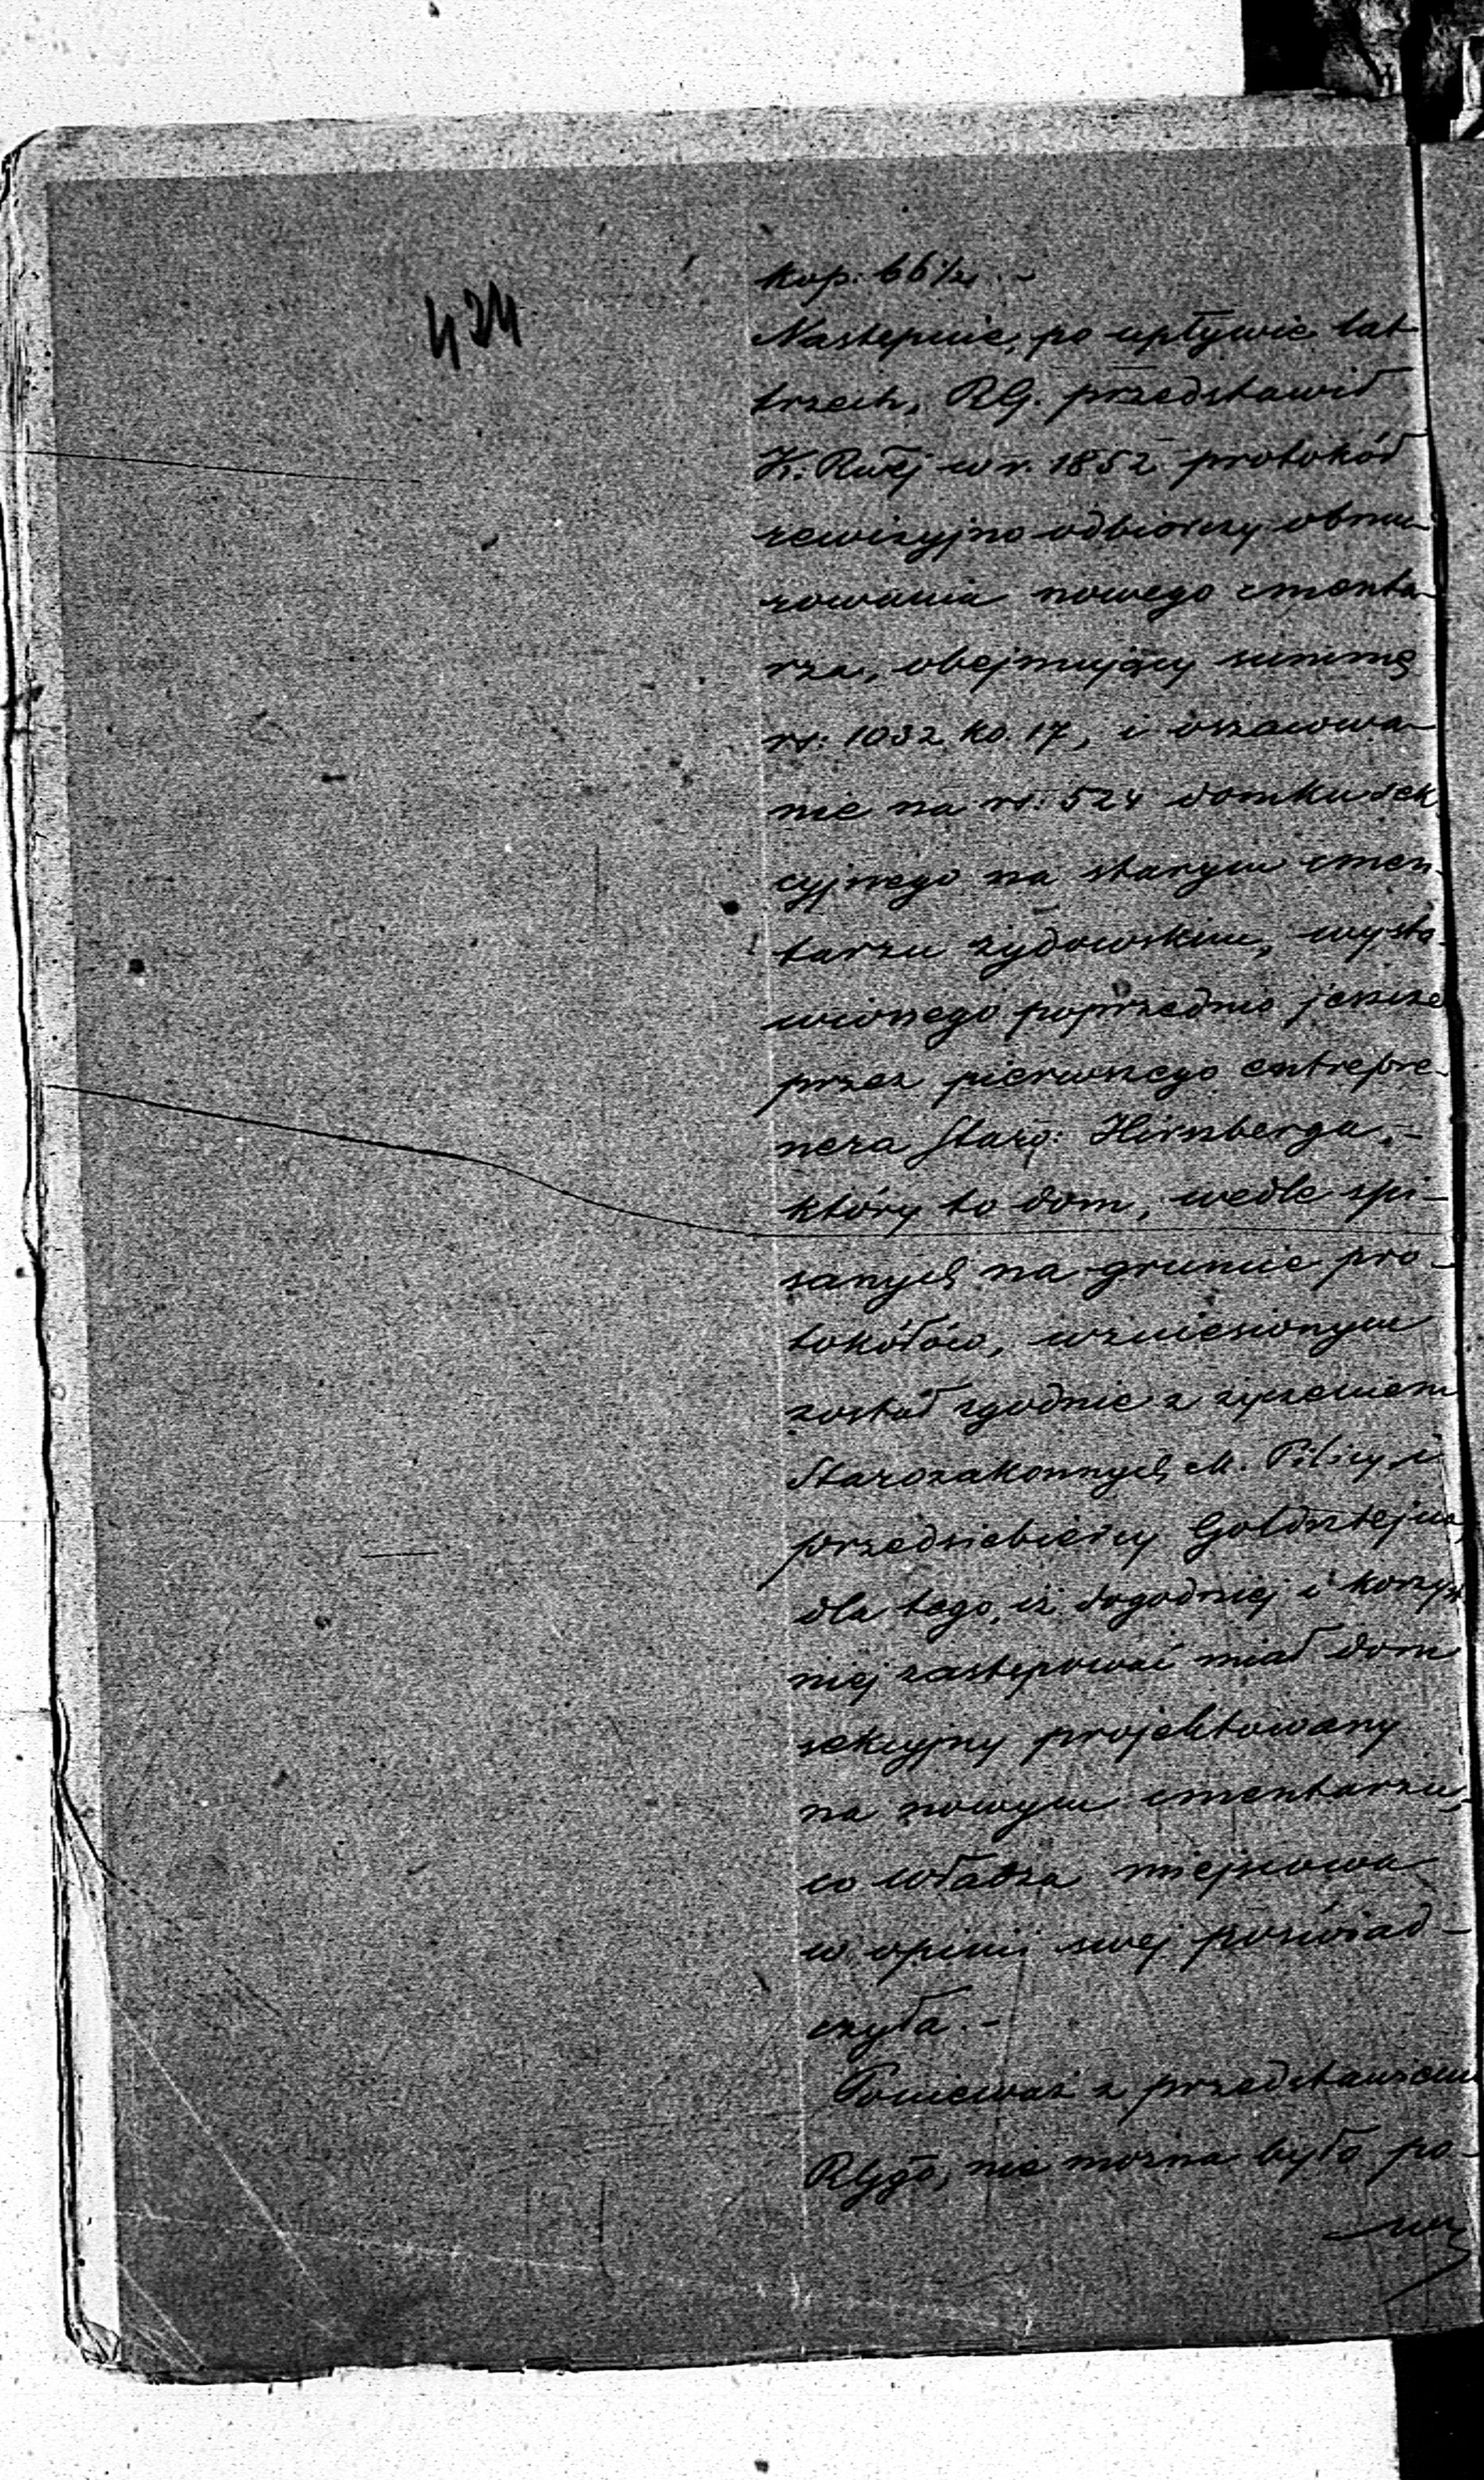 424
kop. 66½. –
Następnie, po upływie lat
trzech, RG. przedstawił
K. Rwej w r. 1852 protokół
rewizyjno odbiorczy obmu-
rowania nowego cmenta-
rza, obejmujący summę
rs: 1032 ko. 17, i oszacowa-
nie na rs: 524 domku sek
cyjnego na starym cmen-
tarzu żydowskim, wysta-
wionego poprzednio jeszcze
przez pierwszego entrepre-
nera Staro: Hirszberga, –
który to dom, wedle spi-
sanych na gruncie pro-
tokółów, wzniesionym
został zgodnie z życzeniem
Starozakonnych M. Pilicy i
przedsiebiercy Goldsztejna,
dla tego, iż dogodniej i korzyst
niej zastępować miał dom
sekcyjny projektowany
na nowym cmentarzu,
co władza miejscowa
w opinii swej poświad-
czyła. –
Ponieważ z przedstawienia
RGgo, nie można było po-